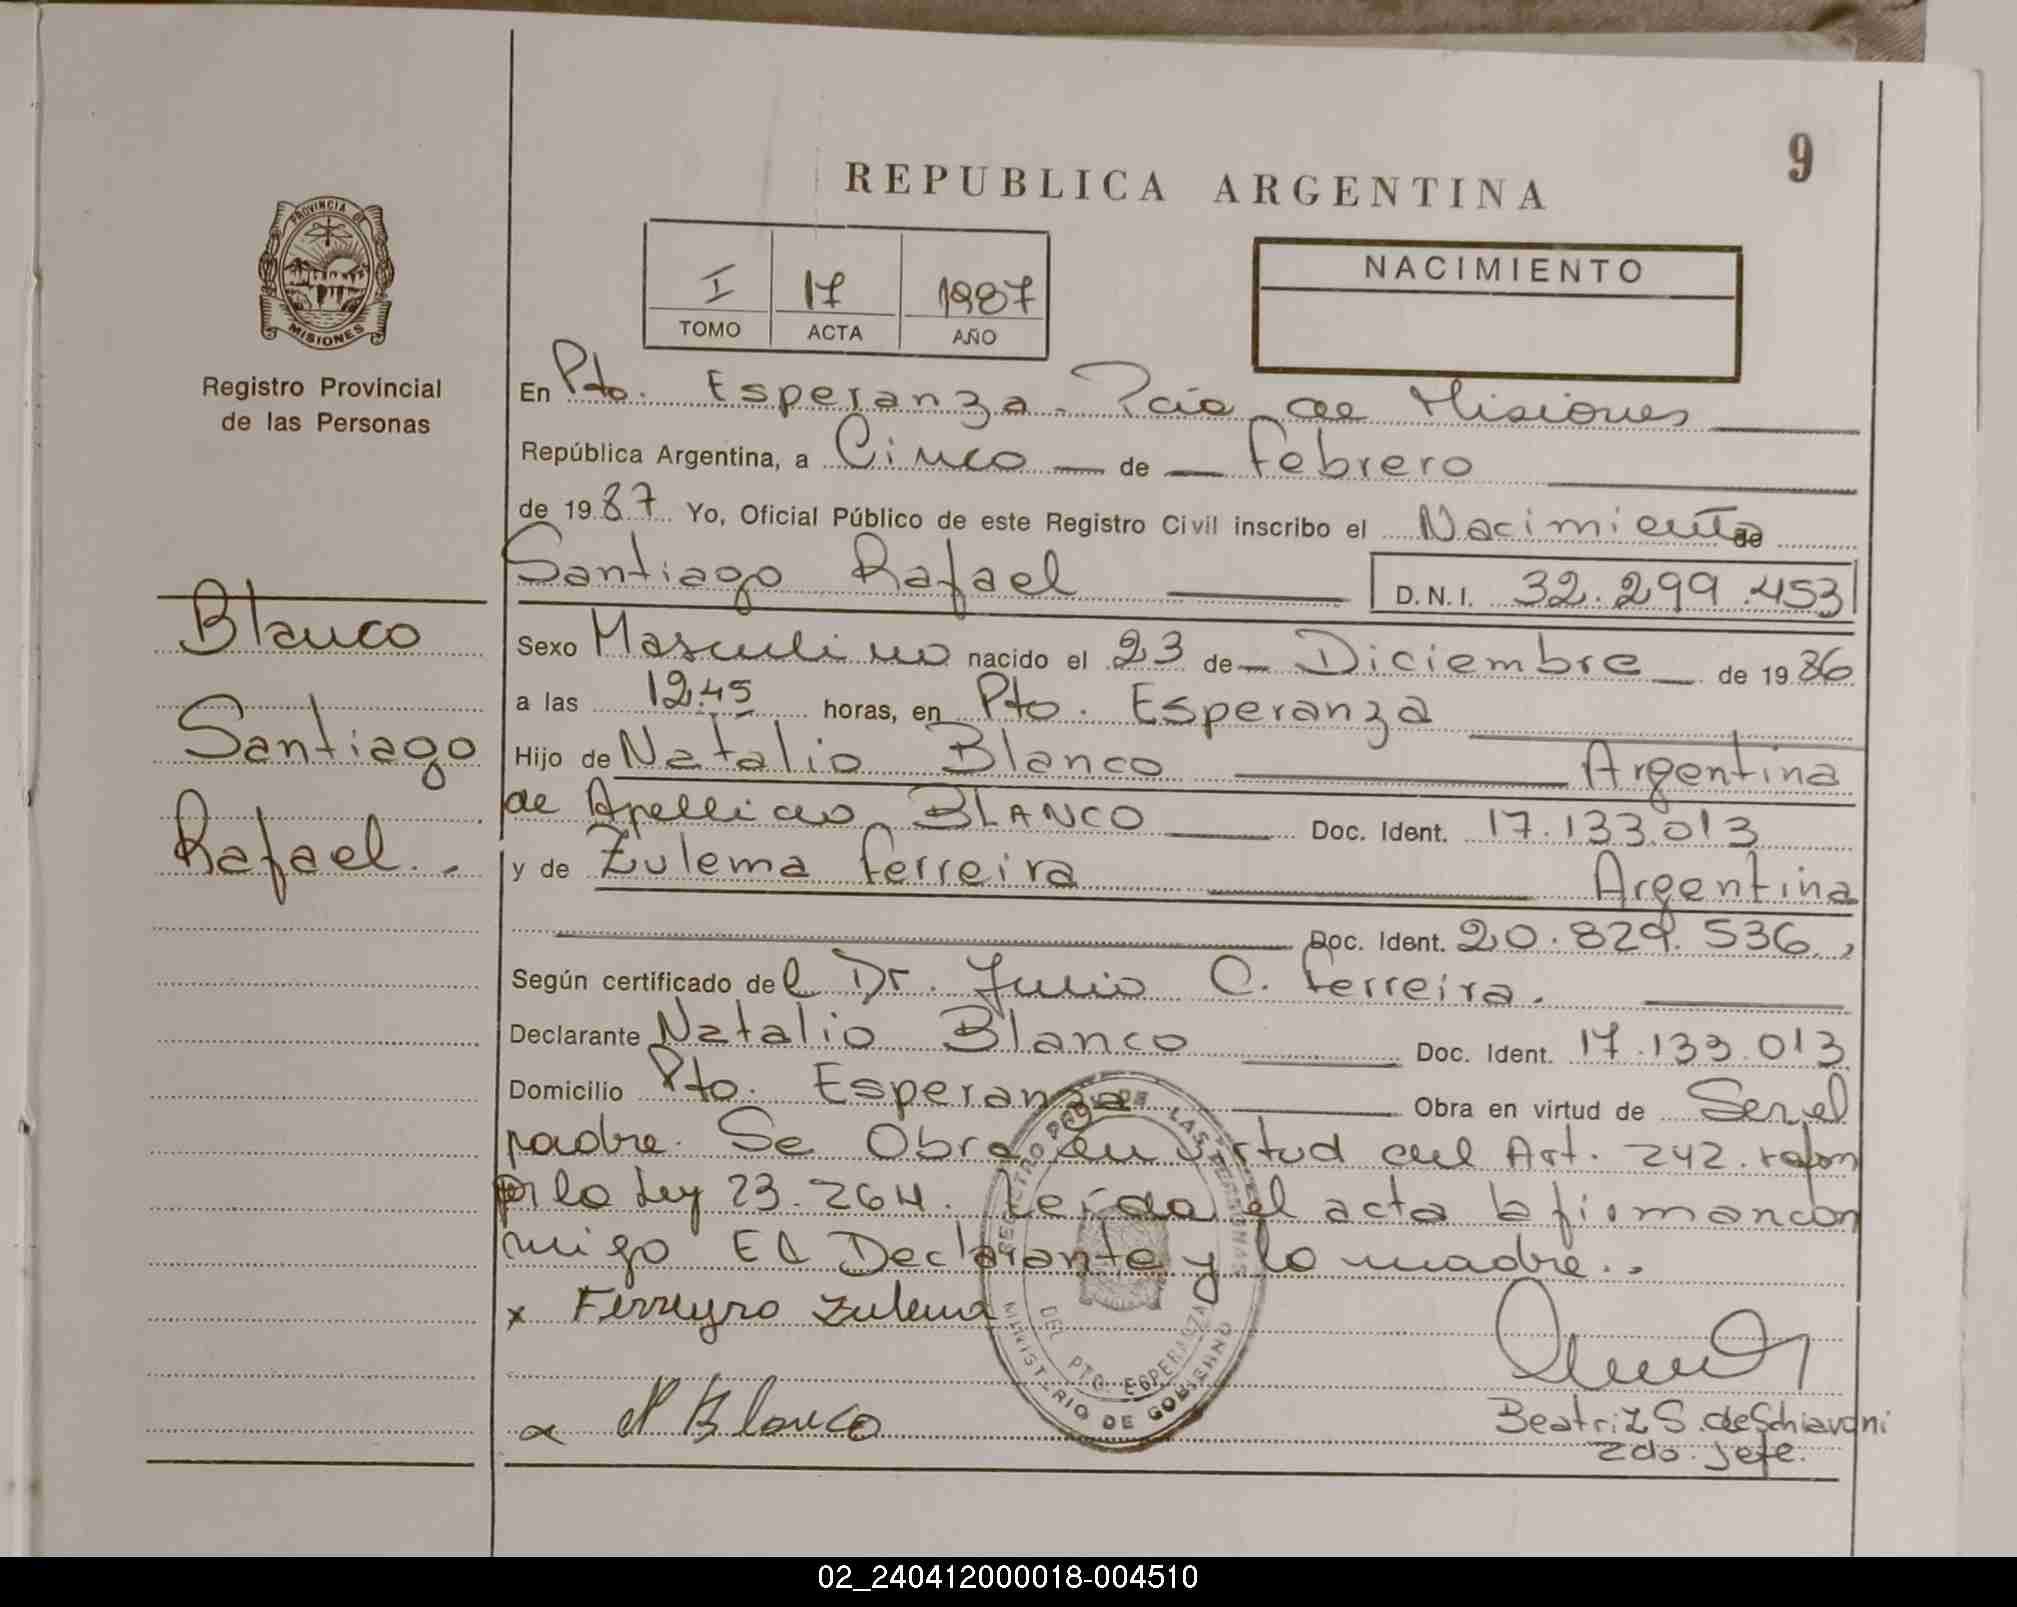 9
REPUBLICA ARGENTINA
PROVINCIA DE
MISIONES
Registro Provincial
de las Personas
I 17 1987
TOMO ACTA AÑO
NACIMIENTO
En Pto. Esperanza - Pcia de Misiones
República Argentina, a Cinco de Febrero
de 1987 Yo, Oficial Público de este Registro Civil inscribo el Nacimiento de
Santiago Rafael D.N.I. 32.299.453
Blanco
Santiago
Rafael..
Sexo Masculino nacido el 23 de Diciembre de 1986
a las 12.45 horas, en Pto. Esperanza
Hijo de Natalio Blanco Argentina
de Apellido BLANCO Doc. Ident. 17.133.013
y de Zulema Ferreira Argentina
Doc. Ident. 20.829.536.,
Según certificado del Dr. Julio C. Ferreira.
Declarante Natalio Blanco Doc. Ident. 17.133.013
Domicilio Pto. Esperanza Obra en virtud de Ser el
padre. Se Obra en virtud del Art. 242. refor
p. la Ley 23.264. Leída el acta la firman con
migo El Declarante y la madre..
x Ferreyro Zulema
x N Blanco
Beatriz S. de Schiavoni
2do. Jefe.
DE LAS PERSONAS
DEL PTO. ESPERANZA
MINISTERIO DE GOBIERNO
02_240412000018-004510